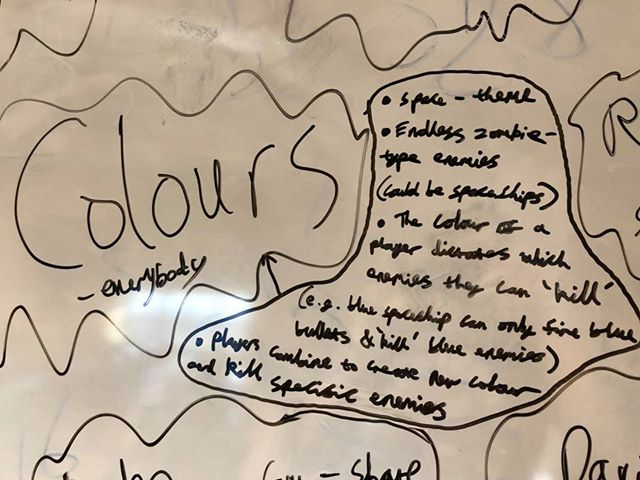 Colours
- everybody
• Space - theme
• Endless zombie-
type enemies
(could be spaceships)
• The colour of a
player dictates which
enemies they can 'kill'
(e.g. blue spaceship can only fire blue
bullets & 'kill' blue enemies)
• players combine to create new colour
and kill specific enemies
R
- shape